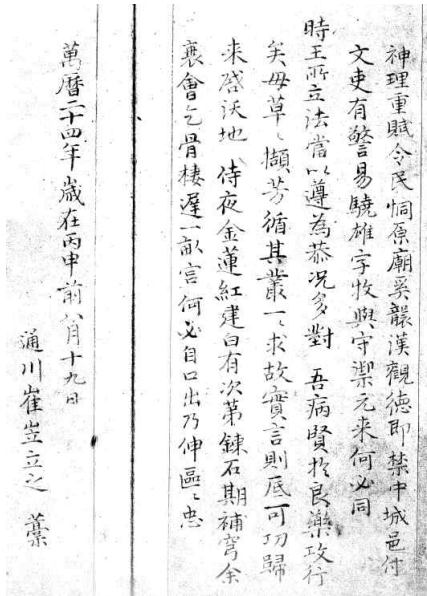 神理重賦令民恫原廟奚襲漢觀德即禁中城邑付
文吏有警易驍雄字牧與守禦元来何必同
時王所立法當以遵為恭況多對 吾病賢於良藥攻行
矣毋草〻擷芳循其叢一〻求故實言則底可功歸
来啓沃地 侍夜金蓮紅建白有次第鍊石期補穹余
衰會乞骨棲遲一畝宮何必自口出乃伸區〻忠
萬曆二十四年歲在丙申前八月十九日
通川崔岦立之 藁